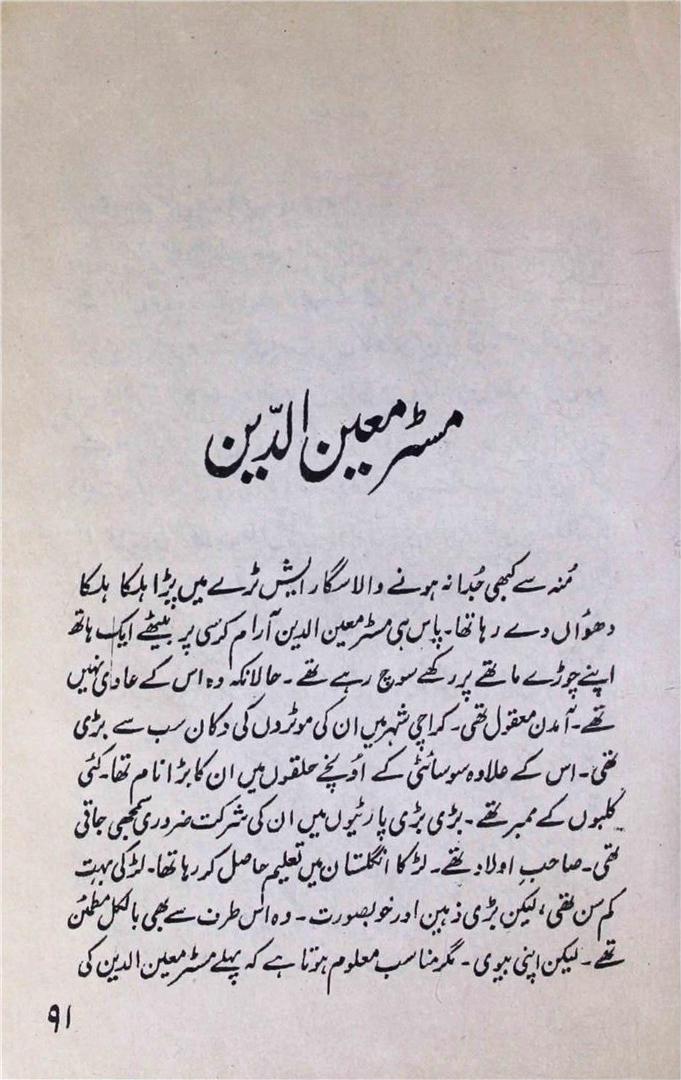 مسٹر معین الدّین
مُنہ سے کبھی جُدا نہ ہونے والا سگار ایش ٹرے میں پڑا ہلکا ہلکا
دھوُاں دے رہا تھا۔ پاس ہی مسٹر معین الدین آرام کرسی پر بیٹھے ایک ہاتھ
اپنے چوڑے ماتھے پر رکھے سوچ رہے تھے۔ حالانکہ وہ اس کے عادی نہیں
تھے۔ آمدن معقول تھی۔ کراچی شہر میں ان کی موٹروں کی دکان سب سے بڑی
تھی۔ اس کے علاوہ سوسائٹی کے اُونچے حلقوں میں ان کا بڑا نام تھا۔ کئی
کلبوں کے ممبر تھے۔ بڑی بڑی پارٹیوں میں ان کی شرکت ضروری سمجھی جاتی
تھی۔ صاحبِ اولاد تھے۔ لڑکا انگلستان میں تعلیم حاصل کر رہا تھا۔ لڑکی بہت
کم سن تھی، لیکن بڑی ذہین اور خوبصورت۔ وہ اس طرف سے بھی بالکل مطمئن
تھے۔ لیکن اپنی بیوی۔ مگر مناسب معلوم ہوتا ہے کہ پہلے مسٹر معین الدین کی
۹۱